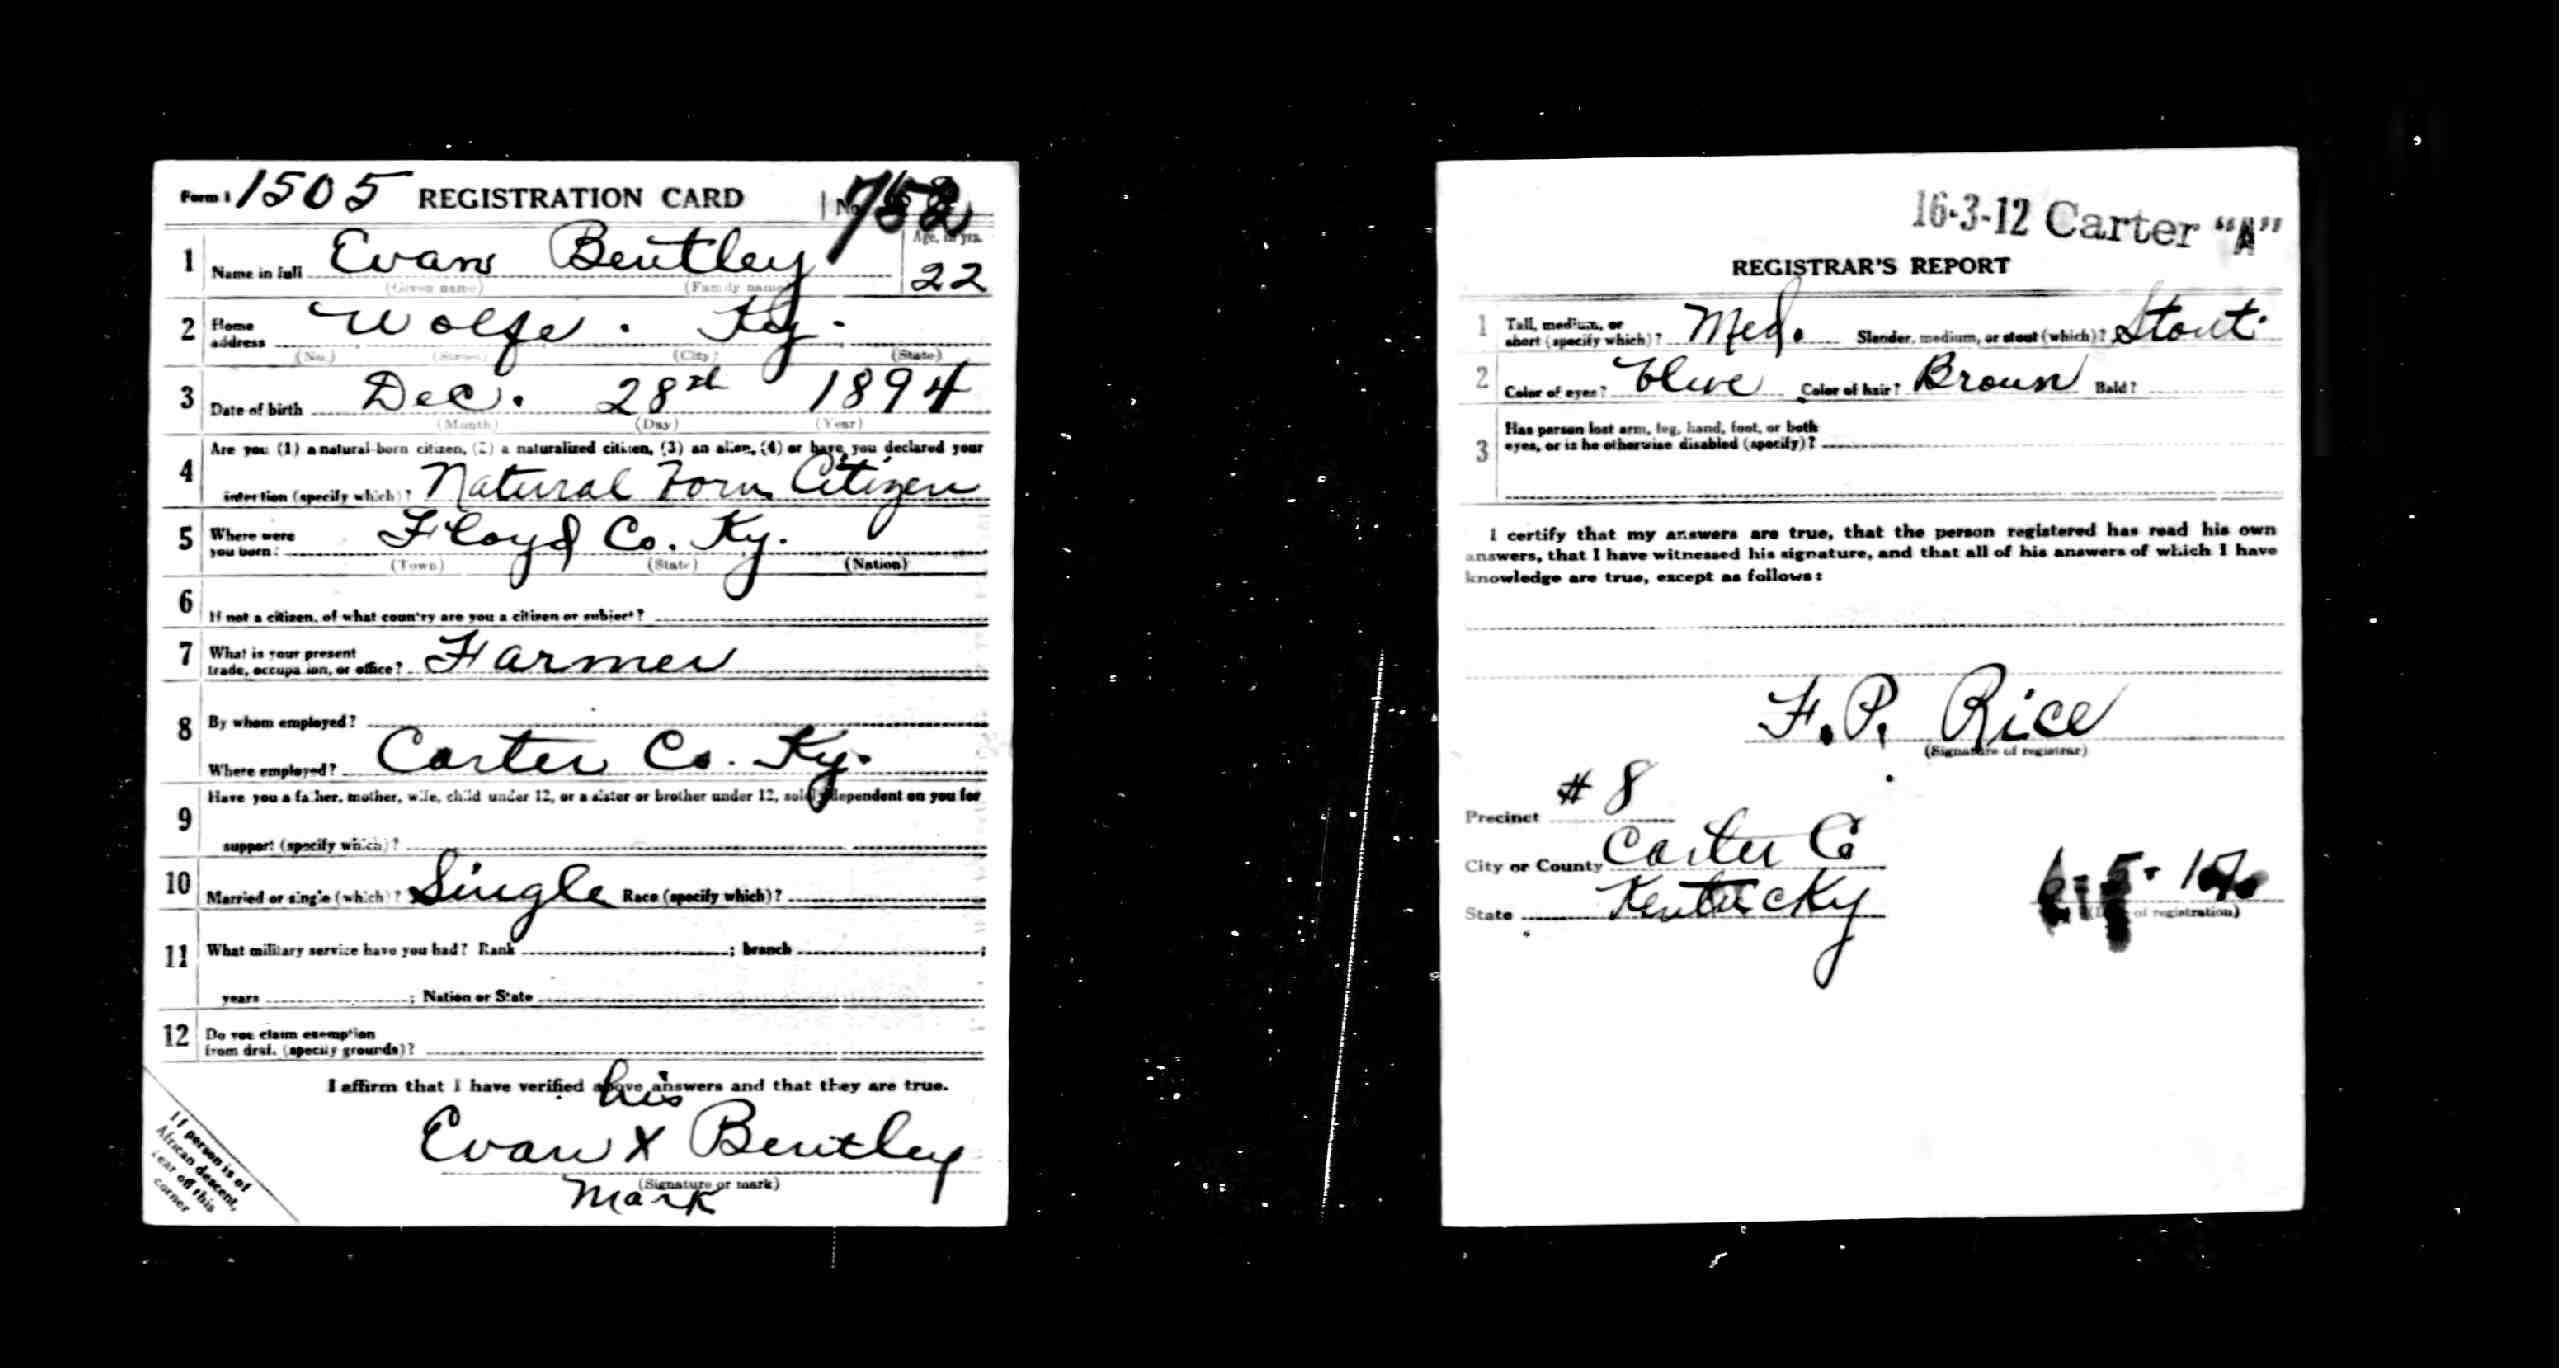 Form 1 1505 REGISTRATION CARD No. 752
1 Name in full Evan Bentley Age, in yrs. 22
(Given name) (Family name)
2 Home address Wolfe. Ky.
(No.) (Street) (City) (State)
3 Date of birth Dec. 28th 1894
(Month) (Day) (Year)
4 Are you (1) a natural-born citizen, (2) a naturalized citizen, (3) an alien, (4) or have you declared your
intention (specify which)? Natural Born Citizen
5 Where were you born? Floyd Co. Ky.
(Town) (State) (Nation)
6 If not a citizen, of what country are you a citizen or subject?
7 What is your present
trade, occupation, or office? Farmer
8 By whom employed?
Where employed? Carter Co. Ky.
9 Have you a father, mother, wife, child under 12, or a sister or brother under 12, solely dependent on you for
support (specify which)?
10 Married or single (which)? Single Race (specify which)?
11 What military service have you had? Rank ; branch ;
years ; Nation or State
12 Do you claim exemption
from draft (specify grounds)?
I affirm that I have verified above answers and that they are true.
his
Evan X Bentley
(Signature or mark)
Mark
If person is of
African descent,
tear off this
corner
16-3-12 Carter "A"
REGISTRAR'S REPORT
1 Tall, medium, or
short (specify which)? Med. Slender, medium, or stout (which)? Stout
2 Color of eyes? Color of hair? Broun Bald?
3 Has person lost arm, leg, hand, foot, or both
eyes, or is he otherwise disabled (specify)?
I certify that my answers are true, that the person registered has read his own
answers, that I have witnessed his signature, and that all of his answers of which I have
knowledge are true, except as follows:
F. P. Rice
(Signature of registrar)
Precinct # 8
City or County Carter Co
State Kentucky
(Date of registration)